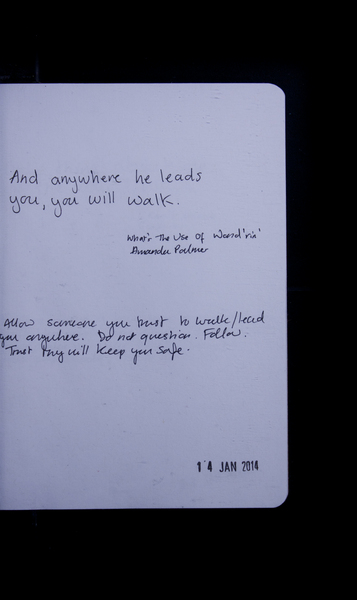 And anywhere he leads
you, you will walk.
What's The Use Of Wond'rin'
Amanda Palmer
Allow someone you trust to walk/lead
you anywhere. Do not question. Follow.
Trust they will keep you safe.
14 JAN 2014